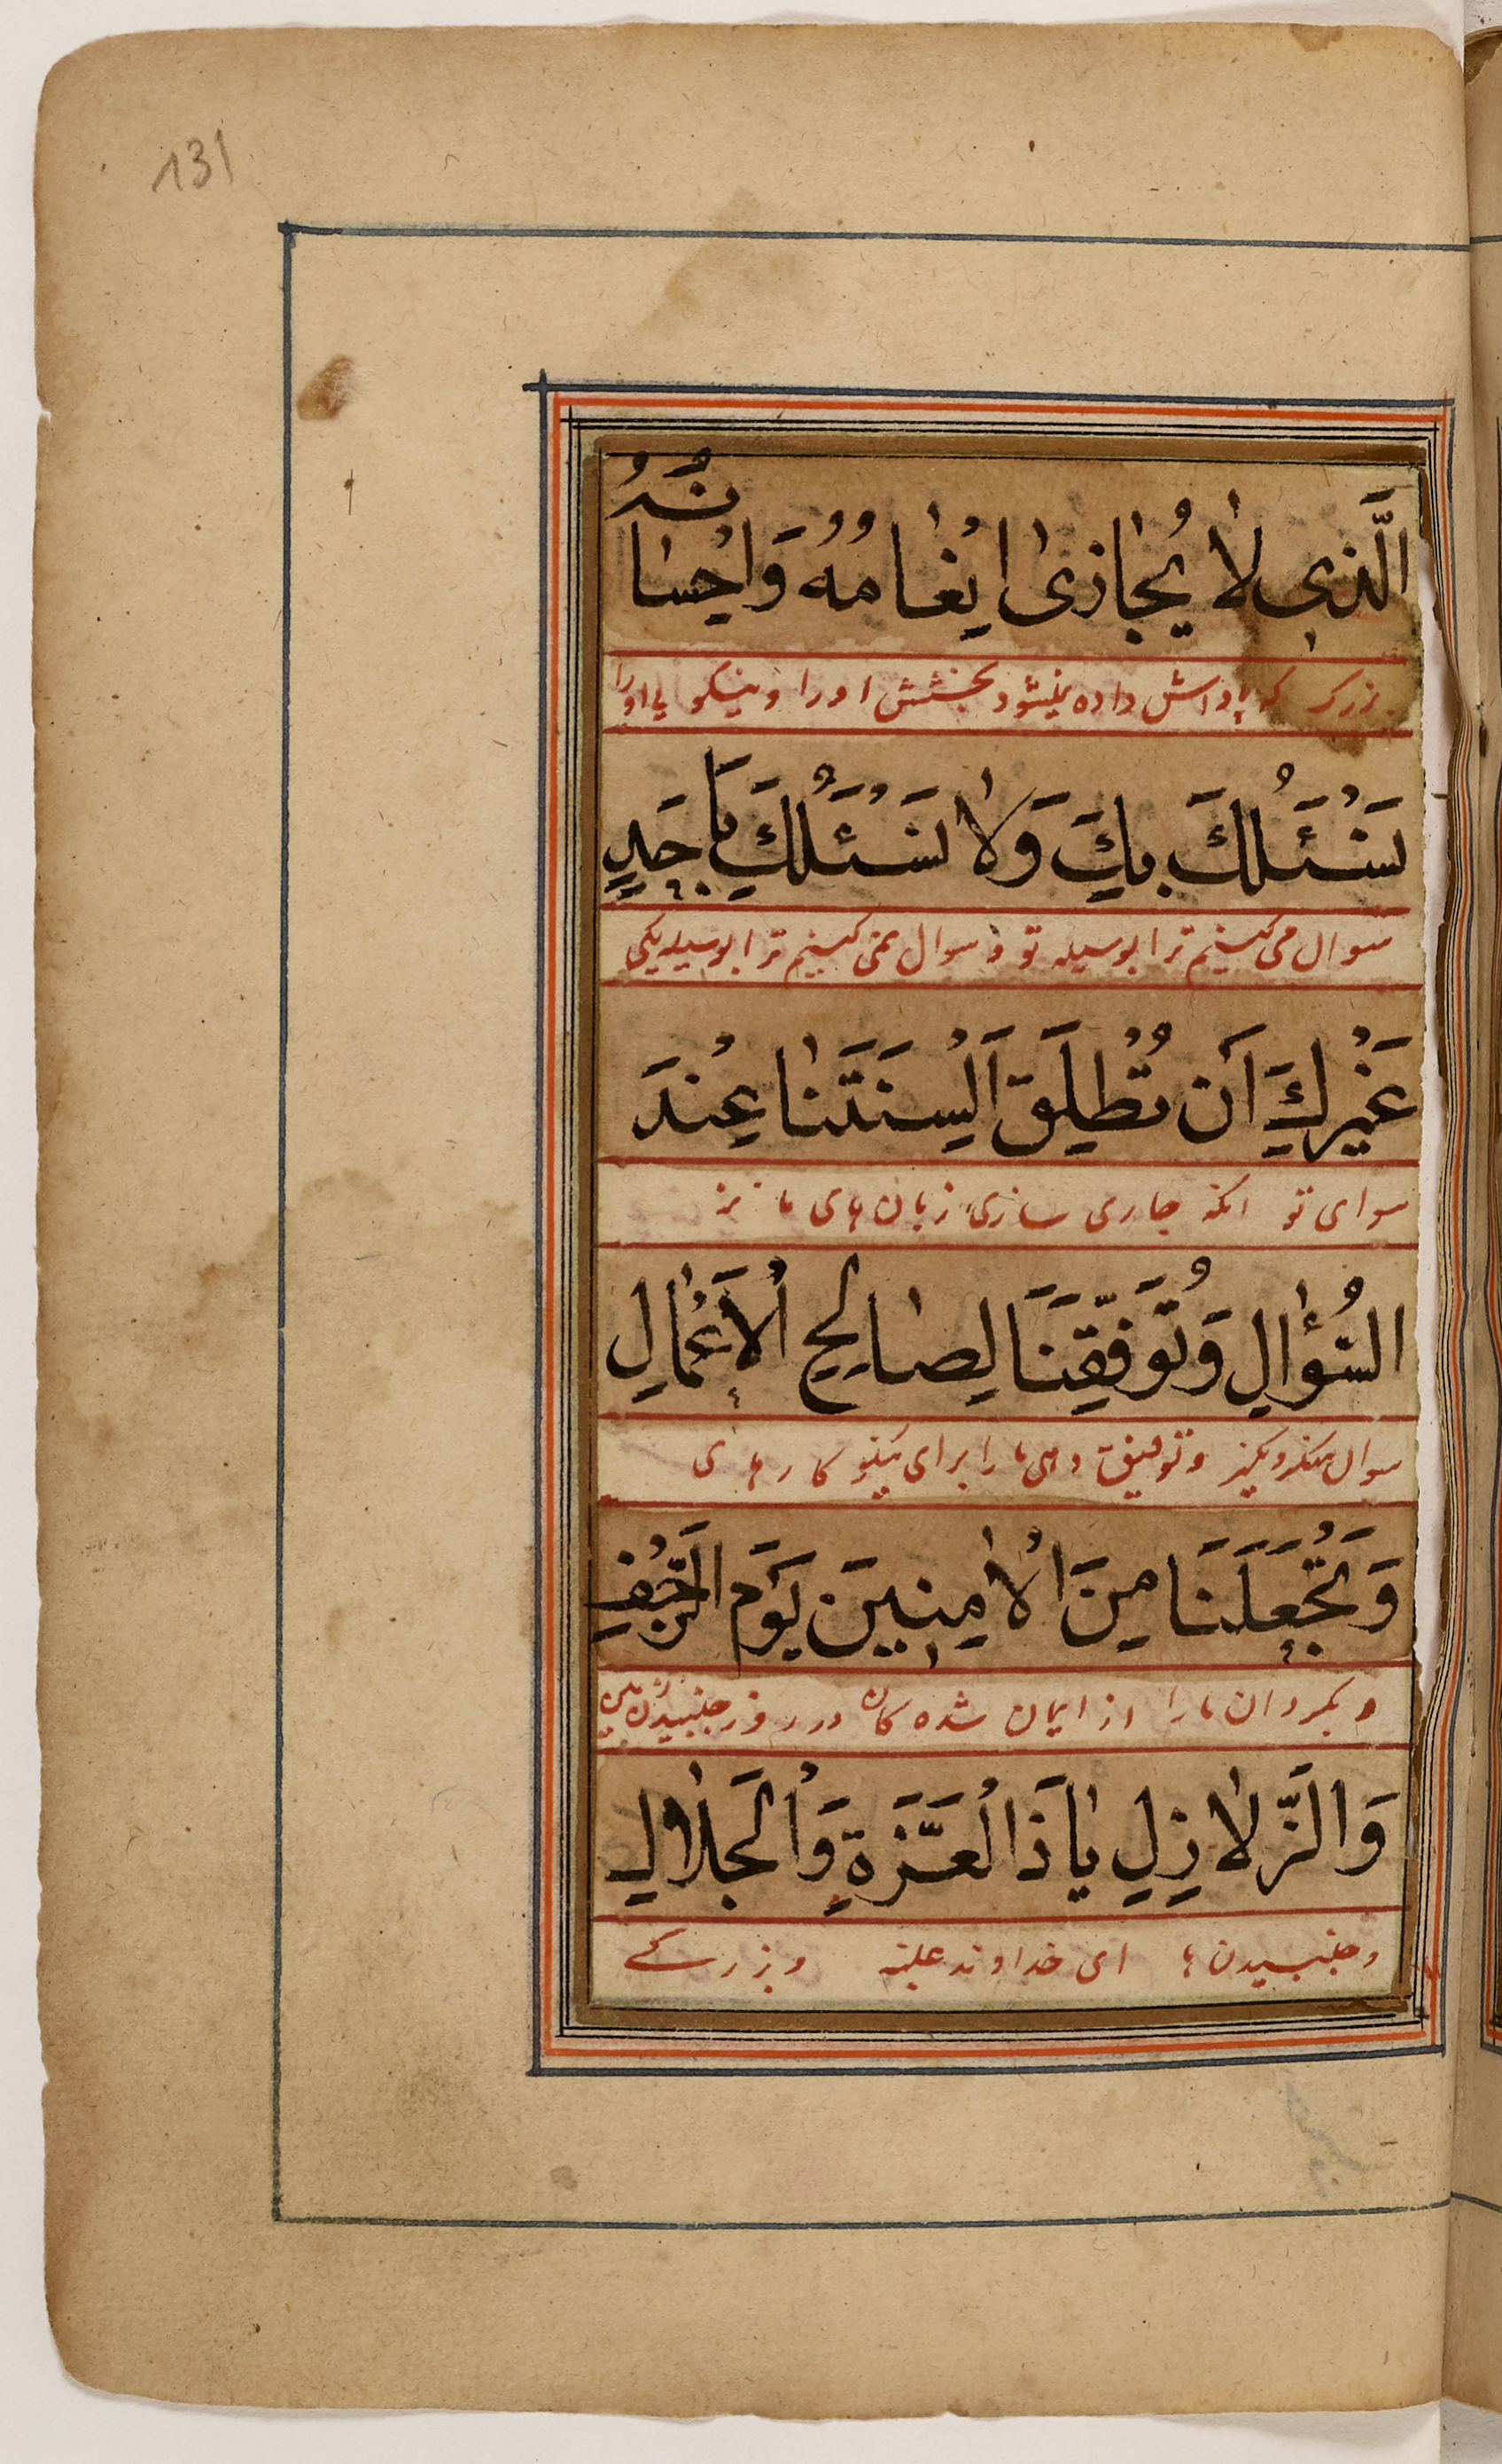 131
الَّذِی لٰا یُجٰازیٰ اِنْعٰامُهُ وَاِحْسٰانُهُ
بزرگ که پاداش داده نمیشود بخشش او را و نیکویی او را
نَسْئَلُكَ بِكَ وَلٰا نَسْئَلُكَ بِاَحَدٍ
سوال می کنیم ترا بوسیله تو و سوال نمی کنیم ترا بوسیله یکی
غَیْرِكَ اَنْ تُطْلِقَ اَلْسِنَتَنٰا عِنْدَ
سوای تو انکه جاری سازی زبان های ما نزد
السُّؤٰالِ وَتُوَفِّقَنَا لِصٰالِحِ الْاَعْمٰالِ
سوال منکر و نکیر و توفیق دهی ما را برای نیکو کارهای
وَتَجْعَلَنَا مِنَ الْاٰمِنِینَ یَوْمَ الرَّجْفِ
و بکردان ما را از ایمان شده کان در روز جنبیدن زمین
وَالزَّلٰازِلِ یٰا ذَا الْعِزَّةِ وَالْجَلٰالِ
و جنبیدن ها ای خداوند غلبه و بزرگے